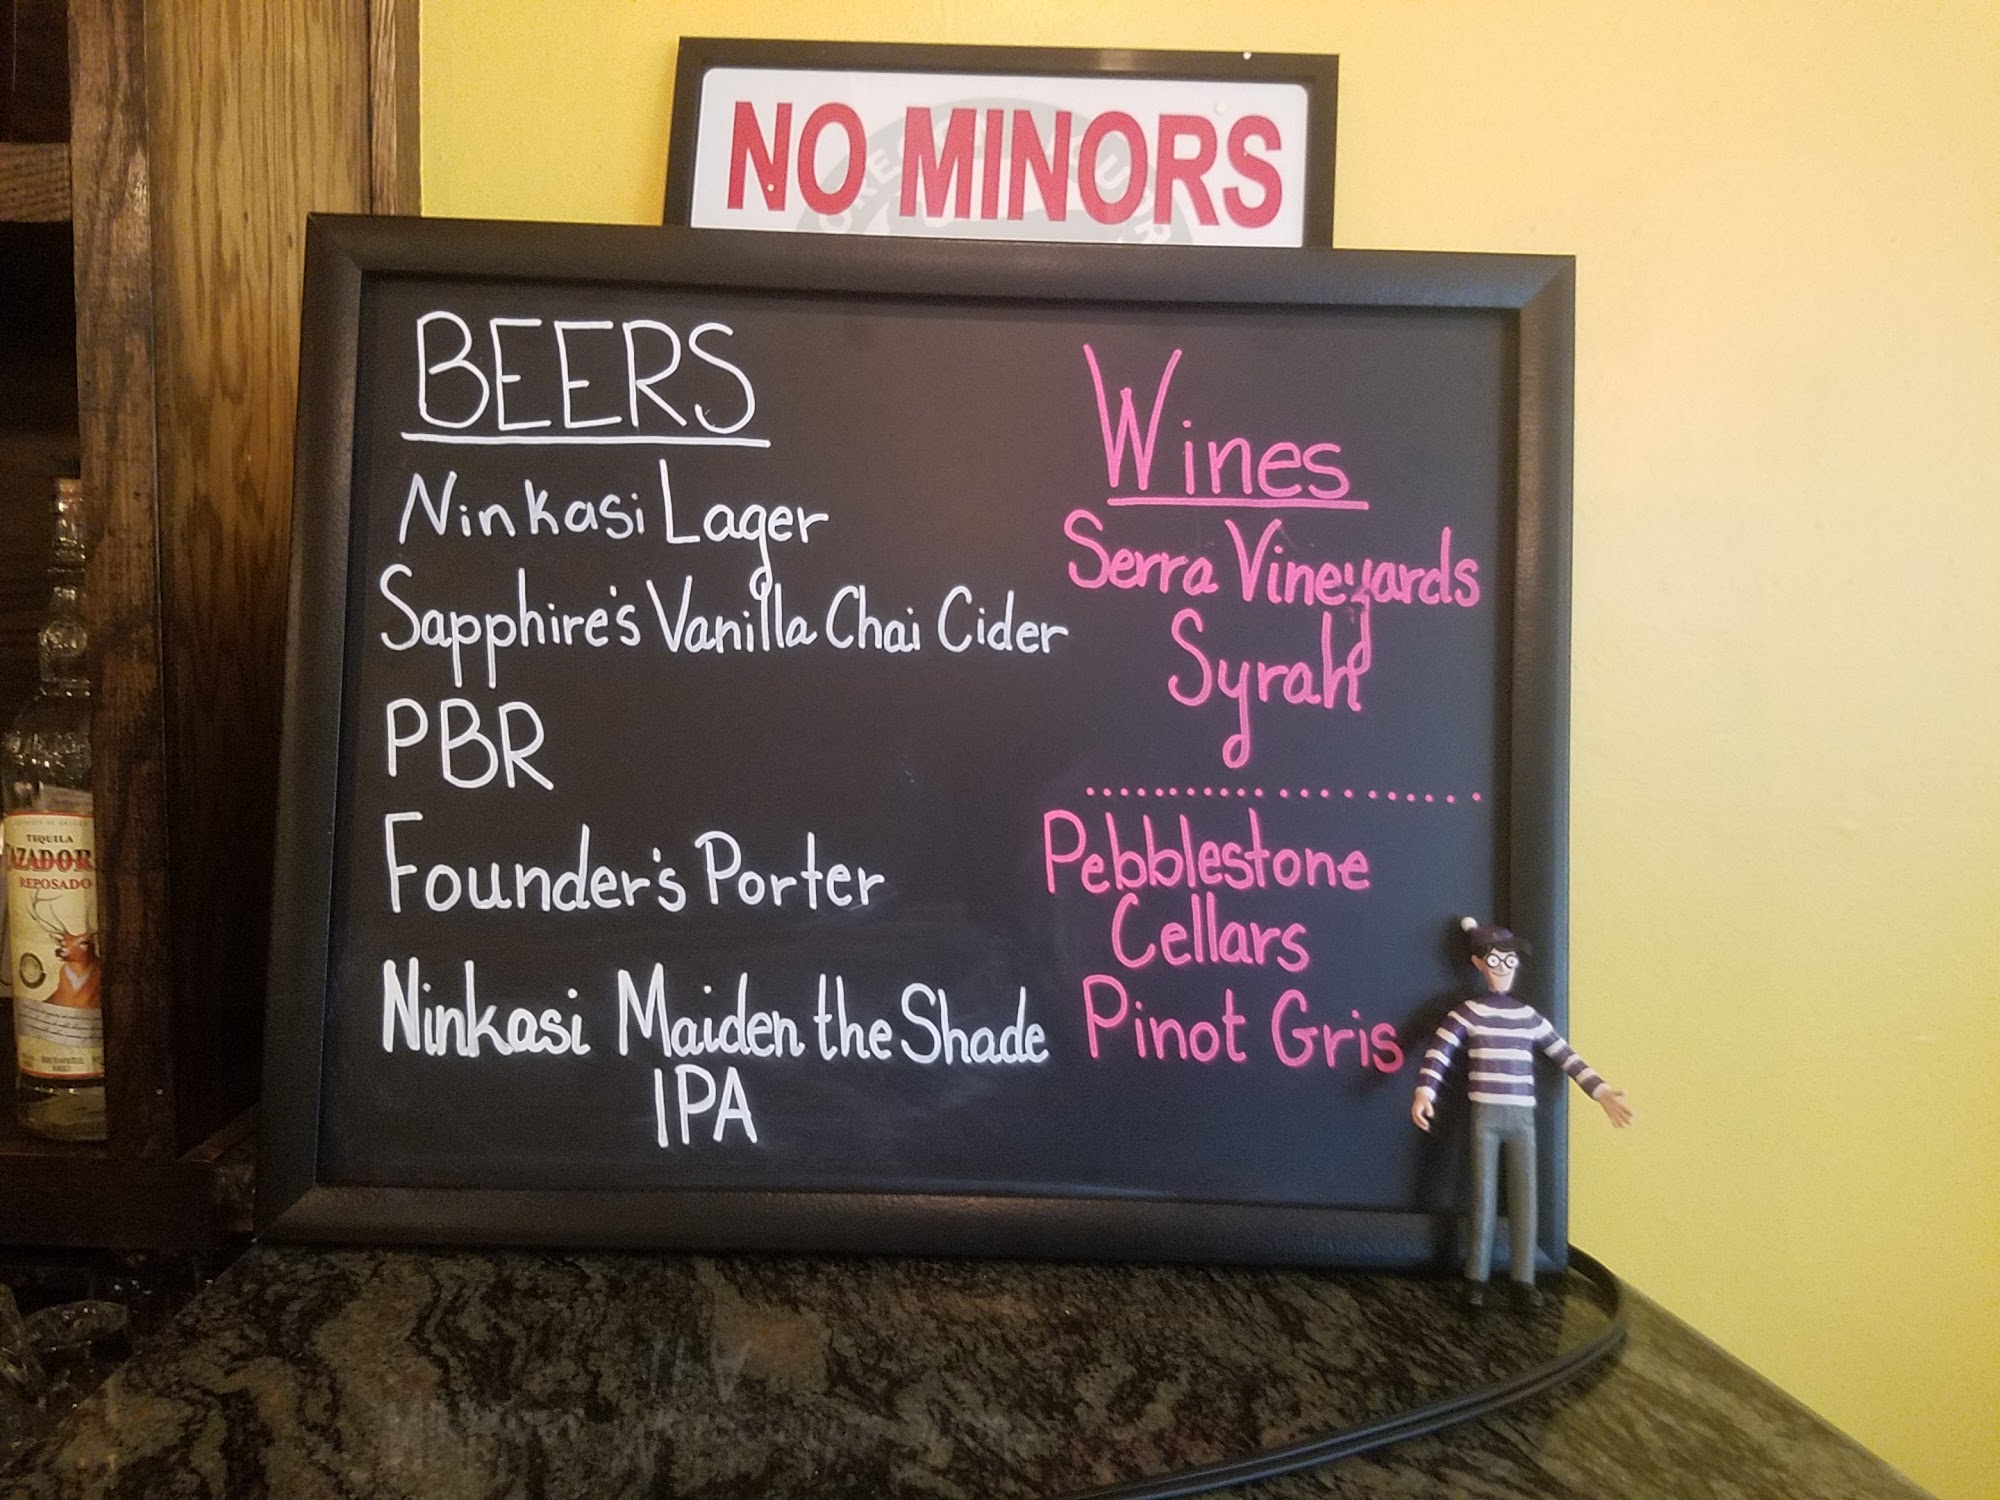 NO MINORS
BEERS
Ninkasi Lager
Sapphire's Vanilla Chai Cider
PBR
Founder's Porter
Ninkasi Maiden the Shade
IPA
Wines
Serra Vineyards
Syrah
Pebblestone
Cellars
Pinot Gris
TEQUILA
AZADOR
REPOSADO